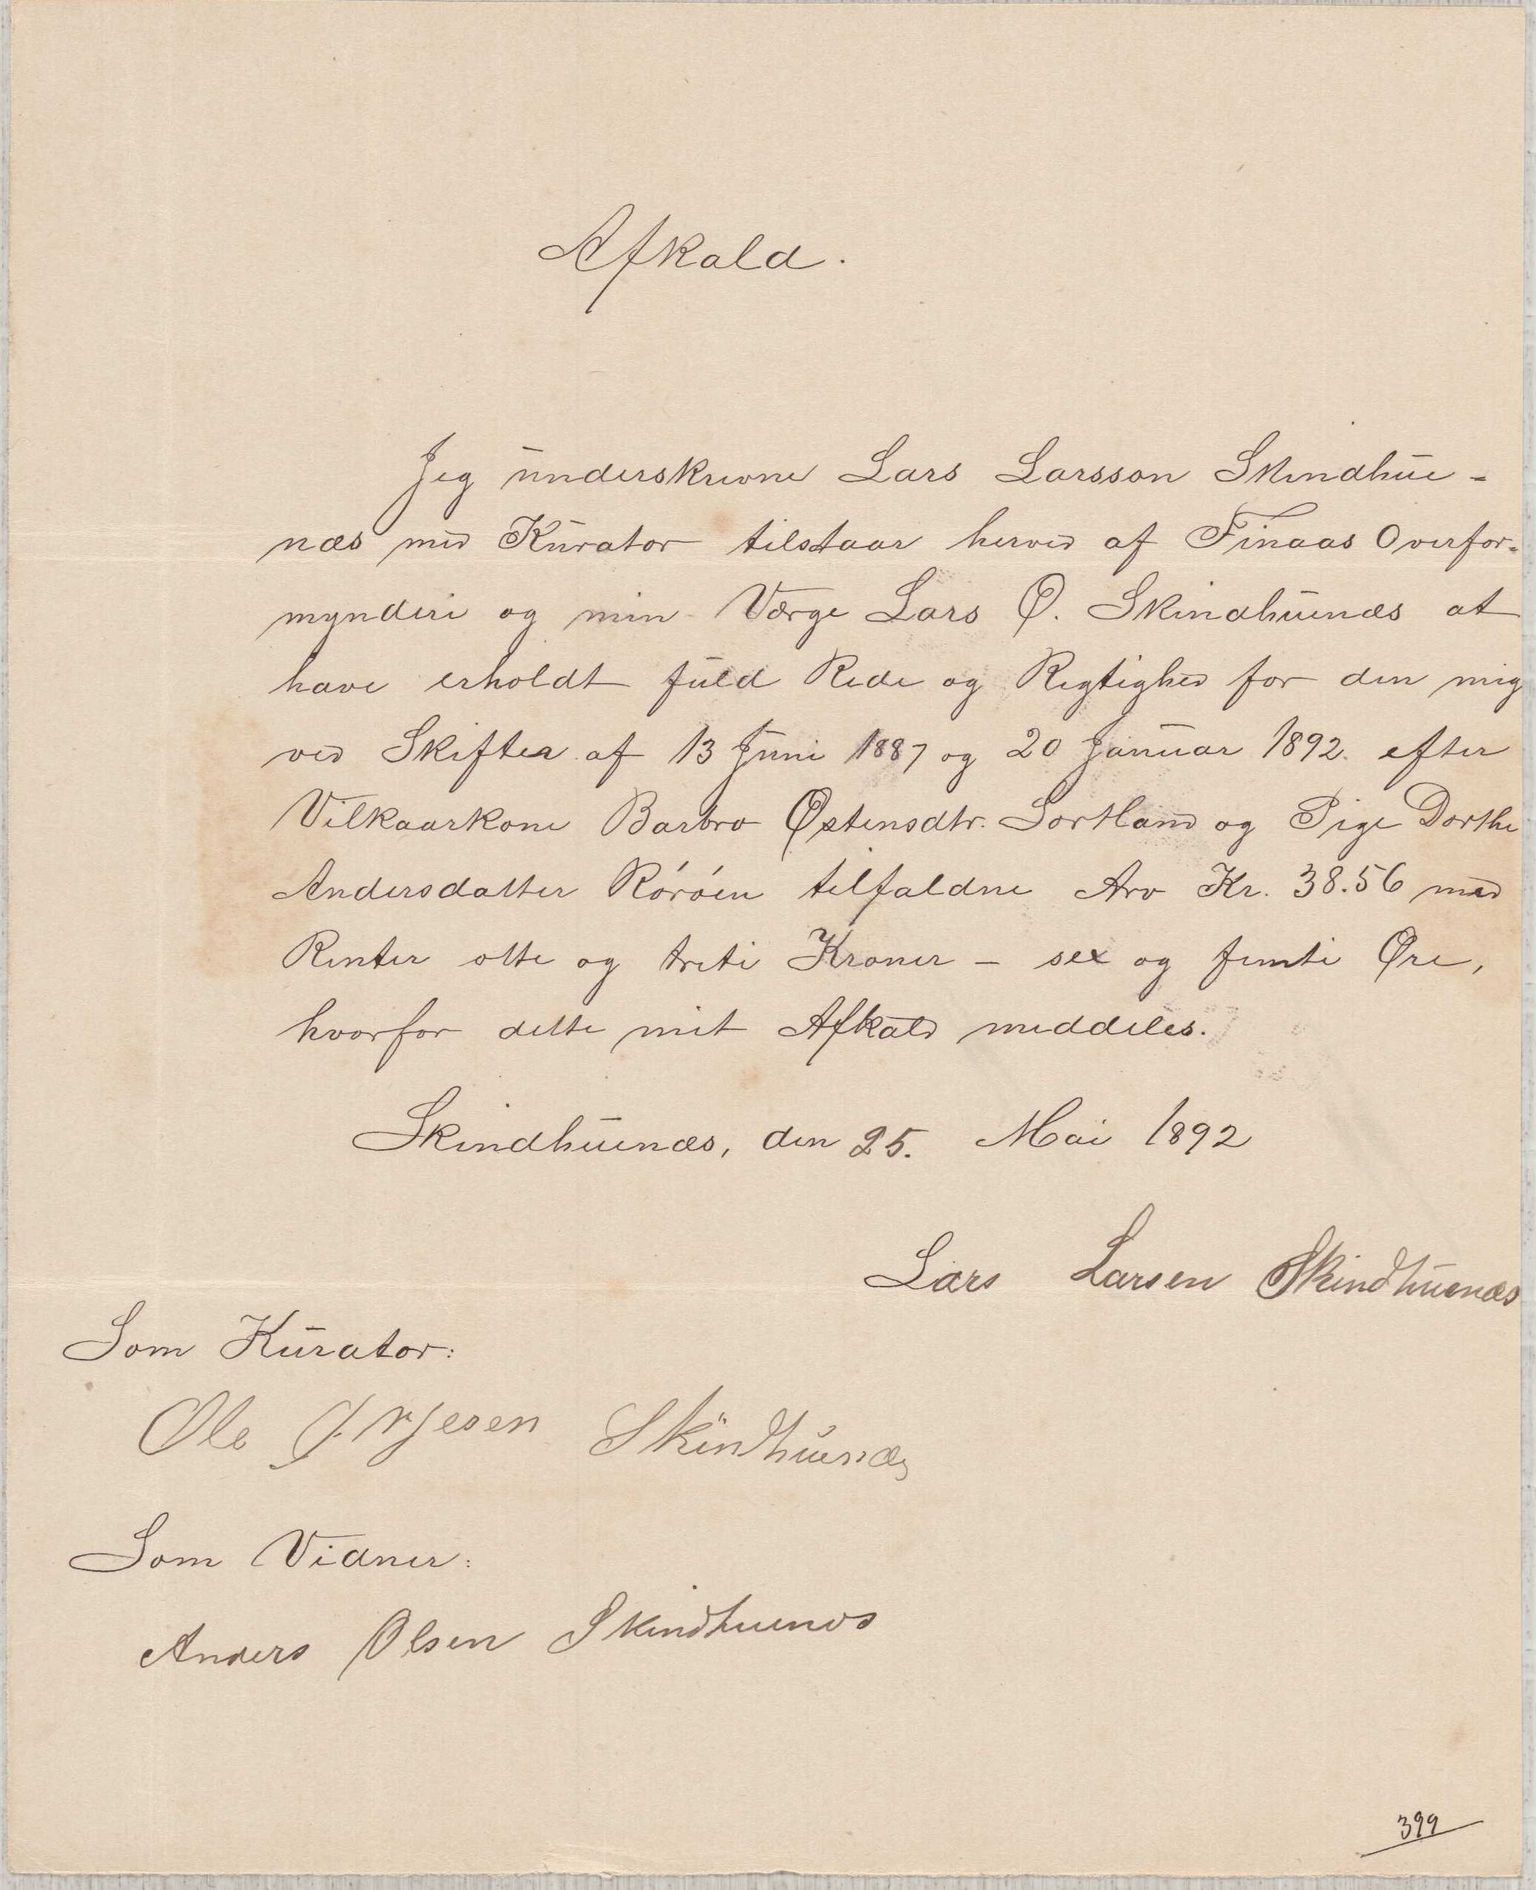 Afkald.
Jeg underskrevne Lars Larsson Skindhue-
næs med Kurator tilstaar herved af Finaas Overfor-
mynderi og min Værge Lars Ø. Skindhuenæs at
have erholdt fuld Rede og Rigtighed for den mig
ved Skifter af 13 Juni 1887 og 20 Januar 1892. efter
Vilkaarkone Barbro Østensdtr. Sortland og Pige Dorthe
Andersdatter Rørøen tilfaldne Arv Kr. 38.56 med
Renter otte og treti Kroner - sex og femti Øre,
hvorfor dette mit Afkald meddeles.
Skindhuenæs, den 25. Mai 1892
Lars Larsen Skindhuenæs
Som Kurator:
Ole Skindhuenæs
Som Vidner:
Anders Olsen Skindhuenæs
399